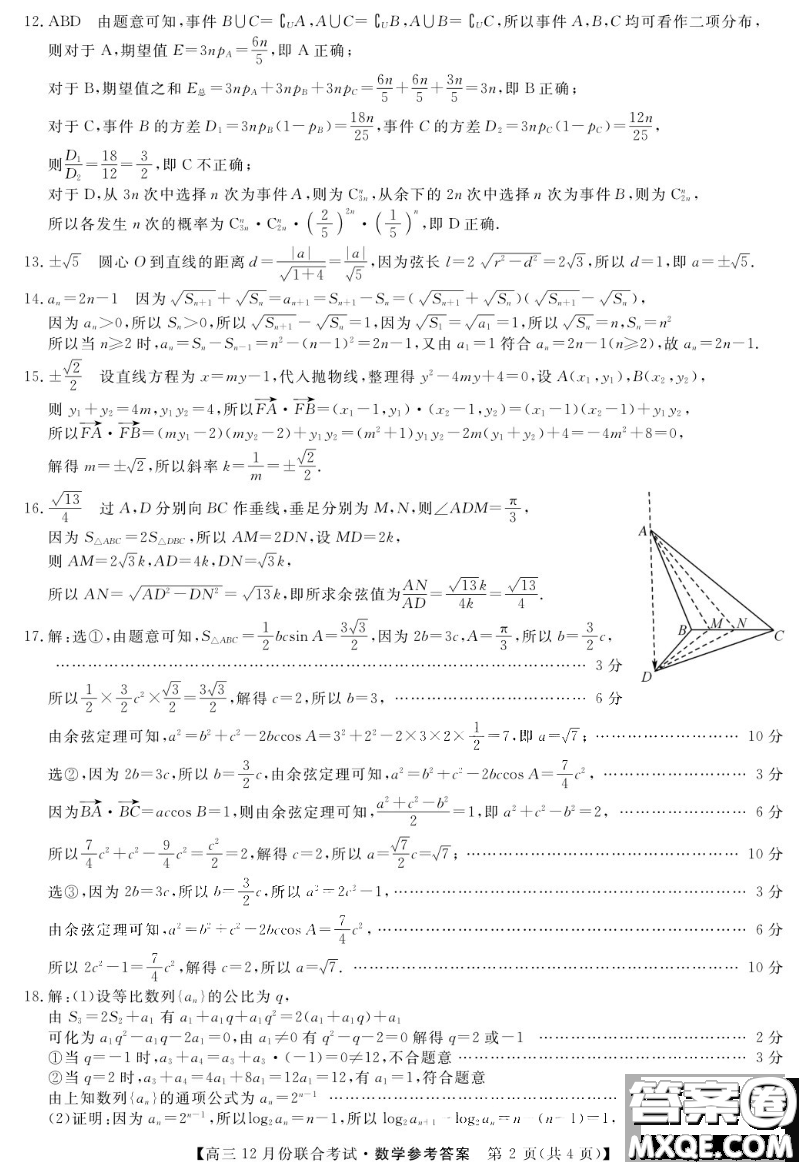 12. ABD　由题意可知,事件 B∪C=∁UA,A∪C=∁UB,A∪B=∁UC,所以事件 A,B,C 均可看作二项分布,
则对于 A,期望值 E=3npA=6n/5,即 A 正确;
对于 B,期望值之和 E总=3npA+3npB+3npC=6n/5+6n/5+3n/5=3n,即 B 正确;
对于 C,事件 B 的方差 D₁=3npB(1-pB)=18n/25,事件 C 的方差 D₂=3npC(1-pC)=12n/25,
则D₁/D₂=18/12=3/2,即 C 不正确;
对于 D,从 3n 次中选择 n 次为事件 A,则为 C₃ₙⁿ,从余下的 2n 次中选择 n 次为事件 B,则为 C₂ₙⁿ,
所以各发生 n 次的概率为 C₃ₙⁿ·C₂ₙⁿ·(2/5)²ⁿ·(1/5)ⁿ,即 D 正确.
13. ±√5　圆心 O 到直线的距离 d=|a|/√(1+4)=|a|/√5,因为弦长 l=2√(r²-d²)=2√3,所以 d=1,即 a=±√5.
14. aₙ=2n-1　因为√Sₙ₊₁+√Sₙ=aₙ₊₁=Sₙ₊₁-Sₙ=(√Sₙ₊₁+√Sₙ)(√Sₙ₊₁-√Sₙ),
因为 aₙ>0,所以 Sₙ>0,所以√Sₙ₊₁-√Sₙ=1,因为√S₁=√a₁=1,所以√Sₙ=n,Sₙ=n²
所以当 n≥2 时,aₙ=Sₙ-Sₙ₋₁=n²-(n-1)²=2n-1,又由 a₁=1 符合 aₙ=2n-1(n≥2),故 aₙ=2n-1.
15. ±√2/2　设直线方程为 x=my-1,代入抛物线,整理得 y²-4my+4=0,设 A(x₁,y₁),B(x₂,y₂),
则 y₁+y₂=4m,y₁y₂=4,所以FA→·FB→=(x₁-1,y₁)·(x₂-1,y₂)=(x₁-1)(x₂-1)+y₁y₂,
所以FA→·FB→=(my₁-2)(my₂-2)+y₁y₂=(m²+1)y₁y₂-2m(y₁+y₂)+4=-4m²+8=0,
解得 m=±√2,所以斜率 k=1/m=±√2/2.
16. √13/4　过 A,D 分别向 BC 作垂线,垂足分别为 M,N,则∠ADM=π/3,
因为 S△ABC=2S△DBC,所以 AM=2DN,设 MD=2k,
则 AM=2√3k,AD=4k,DN=√3k,
所以 AN=√(AD²-DN²)=√13k,即所求余弦值为AN/AD=√13k/4k=√13/4.
A
B
M
N
C
D
17. 解:选①,由题意可知,S△ABC=1/2bcsin A=3√3/2,因为 2b=3c,A=π/3,所以 b=3/2c,
…… 3 分
所以1/2×3/2c²×√3/2=3√3/2,解得 c=2,所以 b=3, …… 6 分
由余弦定理可知,a²=b²+c²-2bccos A=3²+2²-2×3×2×1/2=7,即 a=√7; …… 10 分
选②,因为 2b=3c,所以 b=3/2c,由余弦定理可知,a²=b²+c²-2bccos A=7/4c², …… 3 分
因为BA→·BC→=accos B=1,则由余弦定理可知,(a²+c²-b²)/2=1,即 a²+c²-b²=2, …… 6 分
所以7/4c²+c²-9/4c²=c²/2=2,解得 c=2,所以 a=√7/2c=√7; …… 10 分
选③,因为 2b=3c,所以 b=3/2c,所以 a²=2c²-1, …… 3 分
由余弦定理可知,a²=b²+c²-2bccos A=7/4c², …… 6 分
所以 2c²-1=7/4c²,解得 c=2,所以 a=√7. …… 10 分
18. 解:(1)设等比数列{aₙ}的公比为 q,
由 S₃=2S₂+a₁ 有 a₁+a₁q+a₁q²=2(a₁+a₁q)+a₁
可化为 a₁q²-a₁q-2a₁=0,由 a₁≠0 有 q²-q-2=0 解得 q=2 或-1 …… 2 分
①当 q=-1 时,a₃+a₄=a₃+a₃·(-1)=0≠12,不合题意 …… 3 分
②当 q=2 时,a₃+a₄=4a₁+8a₁=12a₁=12,有 a₁=1,符合题意
由上知数列{aₙ}的通项公式为 aₙ=2ⁿ⁻¹ ……
(2)证明:因为 aₙ=2ⁿ⁻¹,所以log₂aₙ=n-1,所以 log₂aₙ₊₁-log₂aₙ=n-(n-1)=1,
【高三 12 月份联合考试·数学参考答案　第 2 页(共 4 页)】
答案圈
MXQE.COM